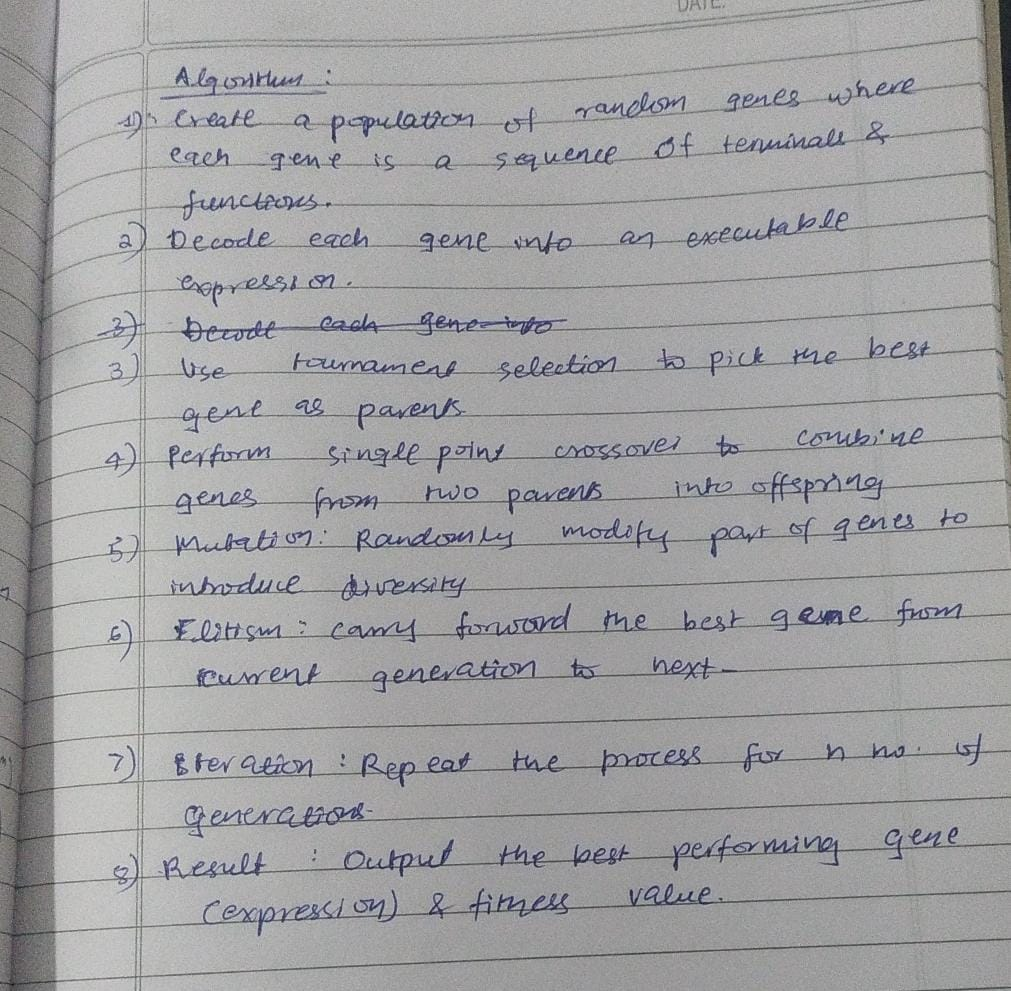 DATE:
Algorithm :
1) Create a population of random genes where
each gene is a sequence of terminals &
functions.
2) Decode each gene into an executable
expression.
3) Decode each gene into
3) Use tournament selection to pick the best
gene as parents
4) Perform single point crossover to combine
genes from two parents into offspring
5) Mutation: Randomly modify part of genes to
introduce diversity
6) Elitism : carry forward the best gene from
current generation to next
7) Iteration : Repeat the process for n no. of
generations.
8) Result : Output the best performing gene
(expression) & fitness value.